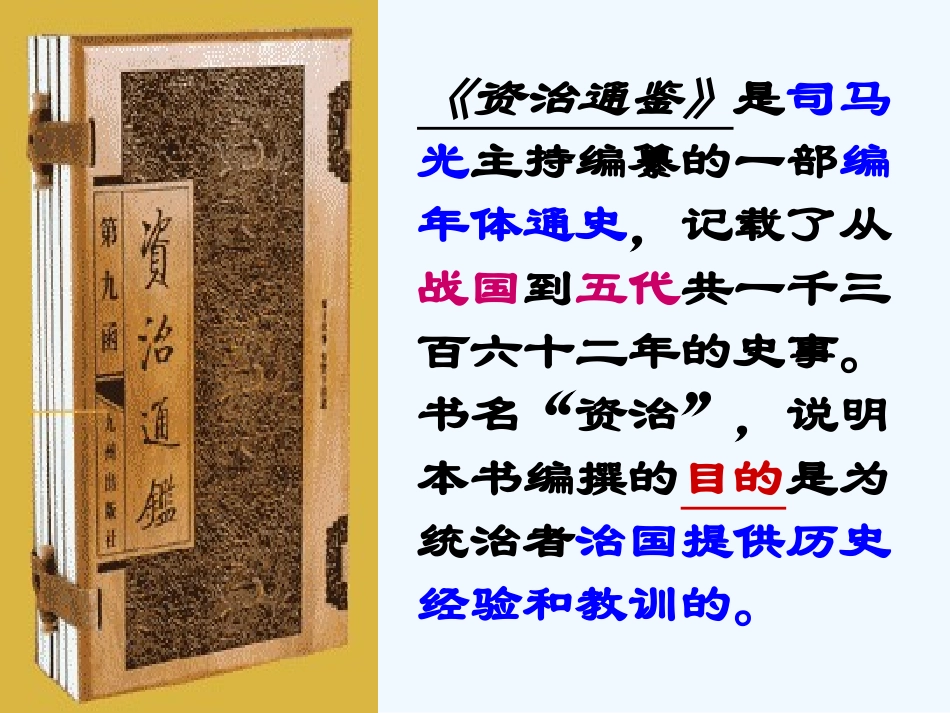 資治通鑑
第九函
九州出版社
《资治通鉴》是司马
光主持编纂的一部编
年体通史，记载了从
战国到五代共一千三
百六十二年的史事。
书名“资治”，说明
本书编撰的目的是为
统治者治国提供历史
经验和教训的。